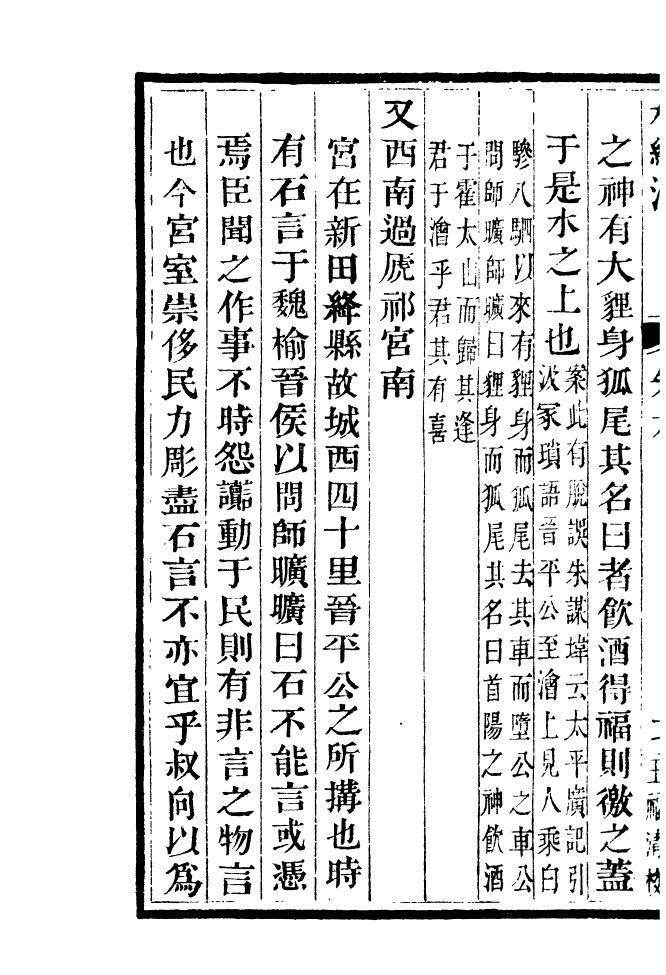 之神有大貍身狐尾其名曰者飮酒得福則徼之蓋
于是水之上也案此有脫誤朱謀㙔云太平廣記引
汲冢瑣語晉平公至澮上見人乘白
驂八駟以來有貍身而狐尾去其車而墮公之車公
問師曠師曠曰貍身而狐尾其名曰首陽之神飮酒
于霍太山而歸其逢
君于澮乎君其有喜
又西南過虒祁宮南
宮在新田絳縣故城西四十里晉平公之所搆也時
有石言于魏榆晉侯以問師曠曠曰石不能言或憑
焉臣聞之作事不時怨讟動于民則有非言之物言
也今宮室崇侈民力彫盡石言不亦宜乎叔向以爲